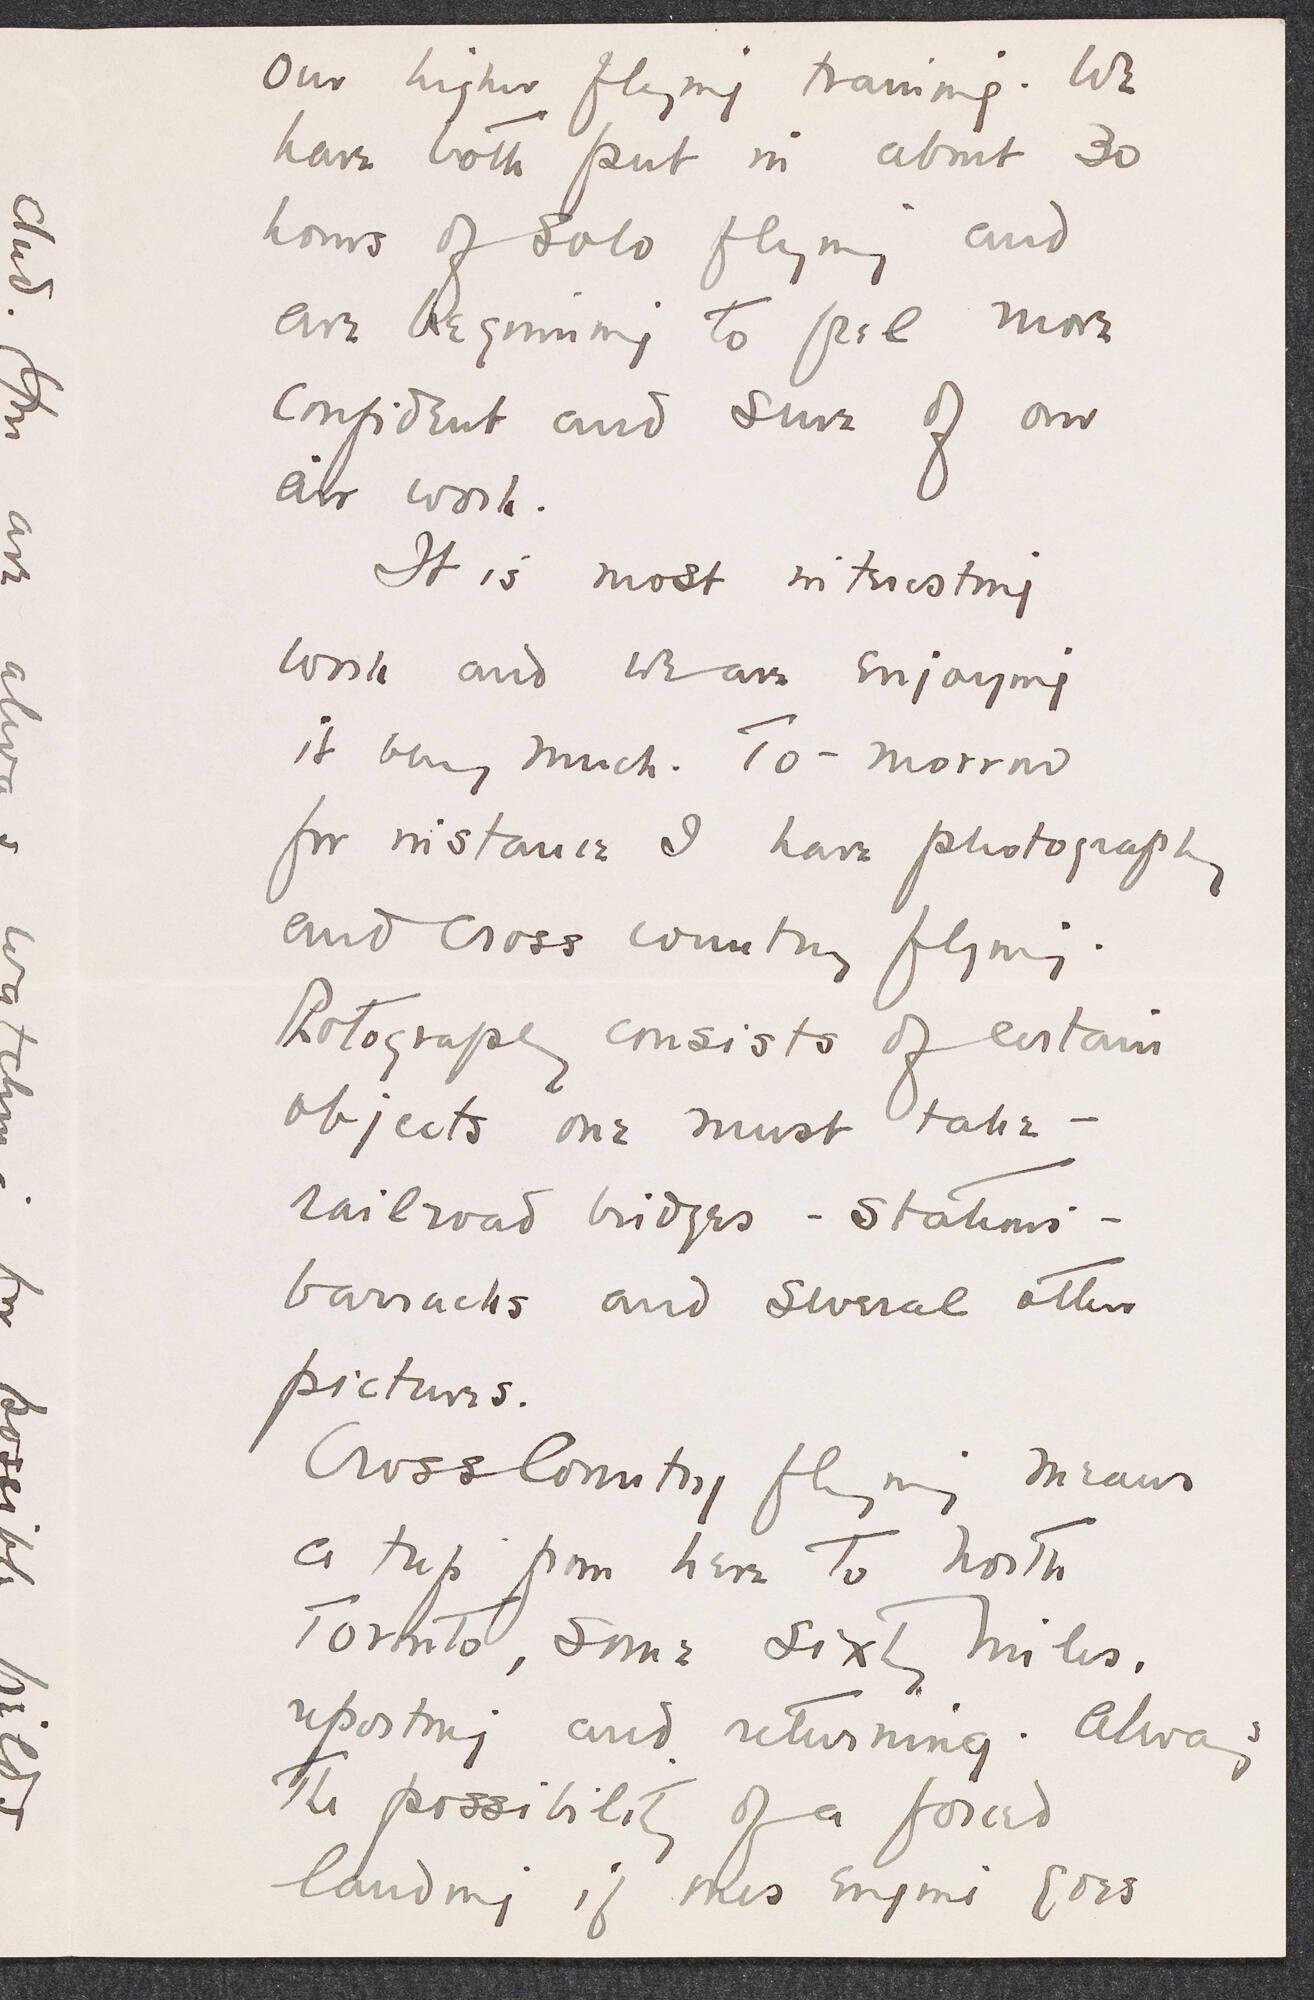 our higher flying training. We
have both put in about 30
hours of solo flying and
are beginning to feel more
confident and sure of our
air work.
It is most interesting
work and we are enjoying
it very much. To-morrow
for instance I have photography
and cross country flying.
Photography consists of certain
objects one must take -
railroad bridges - stations -
barracks and several other
pictures.
Cross Country flying means
a trip from here to North
Toronto, some sixty miles.
reporting and returning. Always
the possibility of a forced
landing if ones engine goes
dud. You are always watching for possible fields